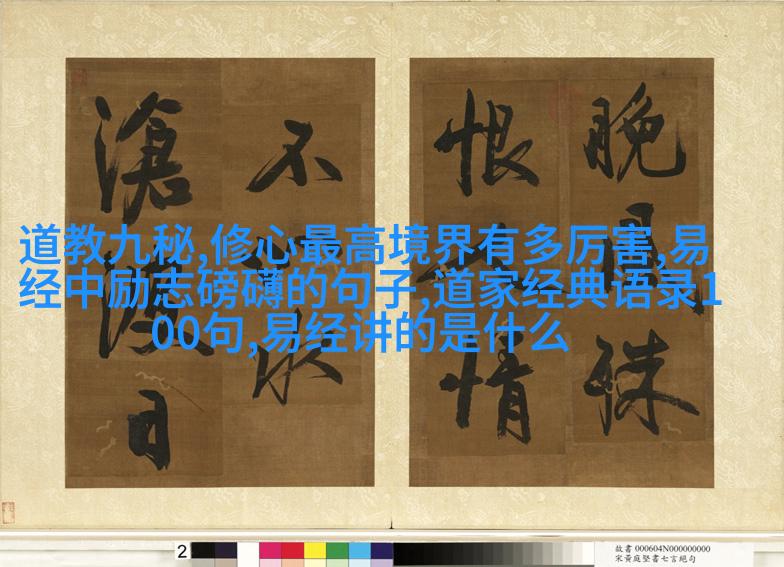 晚風殊
恨 情
不 水
滄 日
道教九秘,修心最高境界有多厉害,易
经中励志磅礴的句子,道家经典语录1
00句,易经讲的是什么
2
故書 000604N000000000
宋黃庭堅書七言絕句